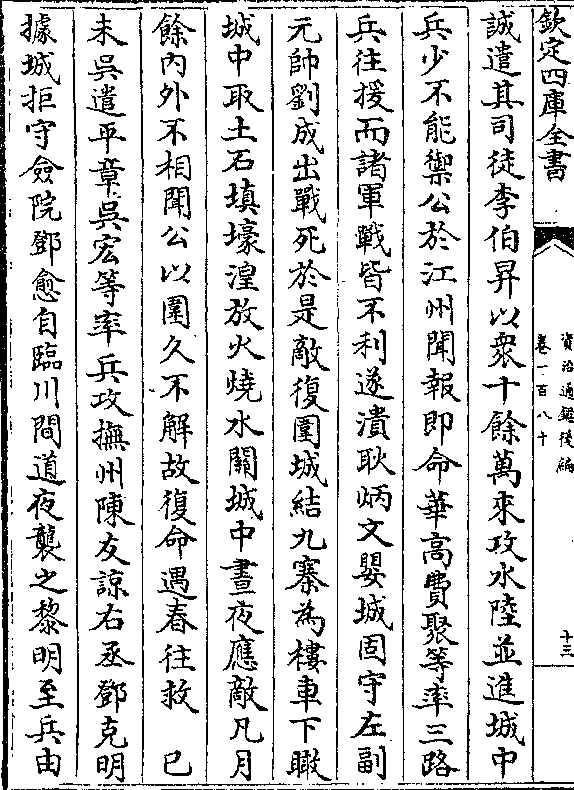 欽定四庫全書
資治通鑑後編
卷一百八十
十三
誠遣其司徒李伯昇以衆十餘萬來攻水陸並進城中
兵少不能禦公於江州聞報即命華高費聚等率三路
兵往援而諸軍戰皆不利遂潰耿炳文嬰城固守左副
元帥劉成出戰死於是敵復圍城結九寨為樓車下瞰
城中取土石填壕湟放火燒水關城中晝夜應敵凡月
餘内外不相聞公以圍久不解故復命遇春往救　已
未吳遣平章吳宏等率兵攻撫州陳友諒右丞鄧克明
據城拒守僉院鄧愈自臨川間道夜襲之黎明至兵由